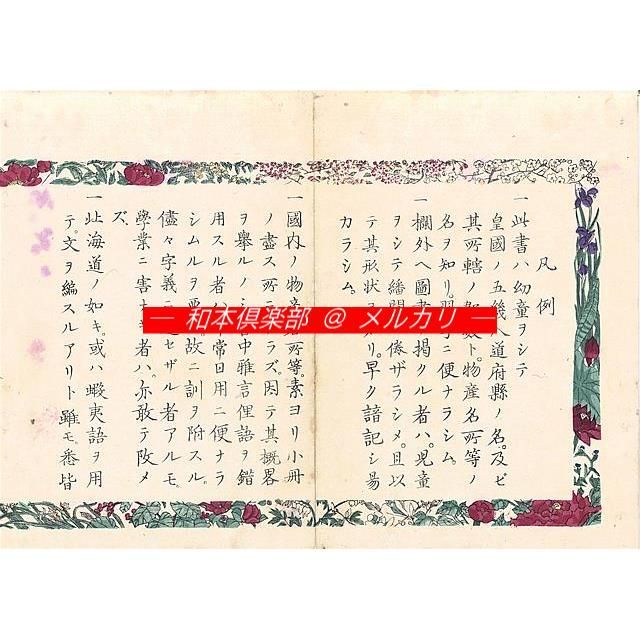 凡例
一此書ハ幼童ヲシテ
皇國ノ五畿八道府縣ノ名及ビ
其所轄ノ 物産名所等ノ
名ヲ知リ 習字ニ便ナラシム
一欄外ヘ圖 掲クル者ハ児童
ヲシテ繙 倦ザラシメ且以
テ其形状ヲ リ早ク諳記シ易
カラシム
一國内ノ物産 所等素ヨリ小冊
ノ盡ス所ニ ラズ因テ其概畧
ヲ舉ルノミ 中雅言俚語ヲ錯
用スル者ハ 常日用ニ便ナラ
シムルヲ要 故ニ訓ヲ附スル
儘々字義ニ セザル者アルモ
學業ニ害ナキ者ハ亦敢テ改メ
ズ
一北海道ノ如キ或ハ蝦夷語ヲ用
テ文ヲ編スルアリト雖モ悉皆
— 和本倶楽部 @ メルカリ —